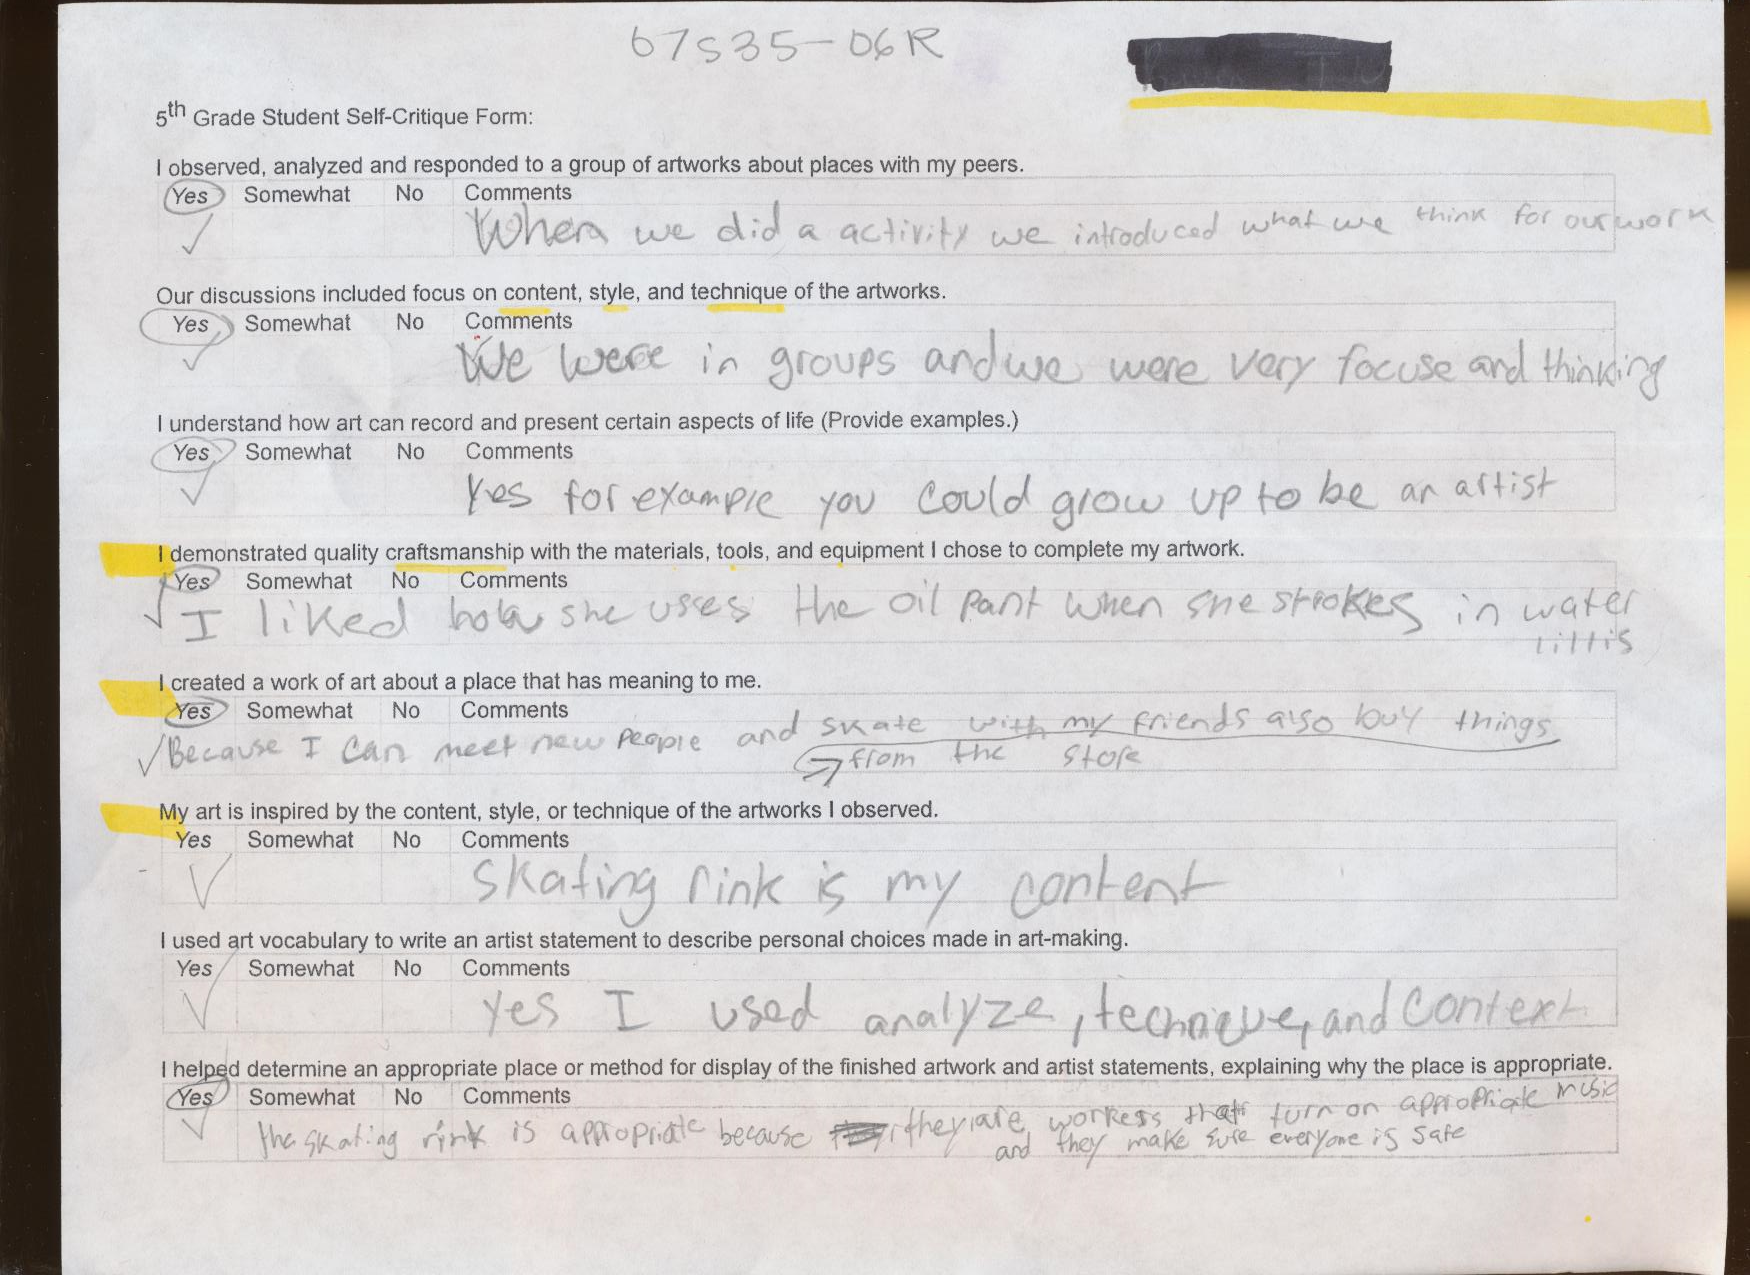 67S35-06R
5th Grade Student Self-Critique Form:
I observed, analyzed and responded to a group of artworks about places with my peers.
Yes Somewhat No Comments
When we did a activity we introduced what we think for our work
Our discussions included focus on content, style, and technique of the artworks.
Yes Somewhat No Comments
We were in groups and we were very focuse and thinking
I understand how art can record and present certain aspects of life (Provide examples.)
Yes Somewhat No Comments
Yes for example you could grow up to be an artist
I demonstrated quality craftsmanship with the materials, tools, and equipment I chose to complete my artwork.
Yes Somewhat No Comments
I liked how she uses the oil pant when she strokes in water
lillis
I created a work of art about a place that has meaning to me.
Yes Somewhat No Comments
Because I can meet new people and skate with my friends also buy things
from the store
My art is inspired by the content, style, or technique of the artworks I observed.
Yes Somewhat No Comments
skating rink is my content
I used art vocabulary to write an artist statement to describe personal choices made in art-making.
Yes Somewhat No Comments
yes I used analyze, technique, and context
I helped determine an appropriate place or method for display of the finished artwork and artist statements, explaining why the place is appropriate.
Yes Somewhat No Comments
the skating rink is appropriate because they are workers that turn on appropriate music
and they make sure everyone is safe